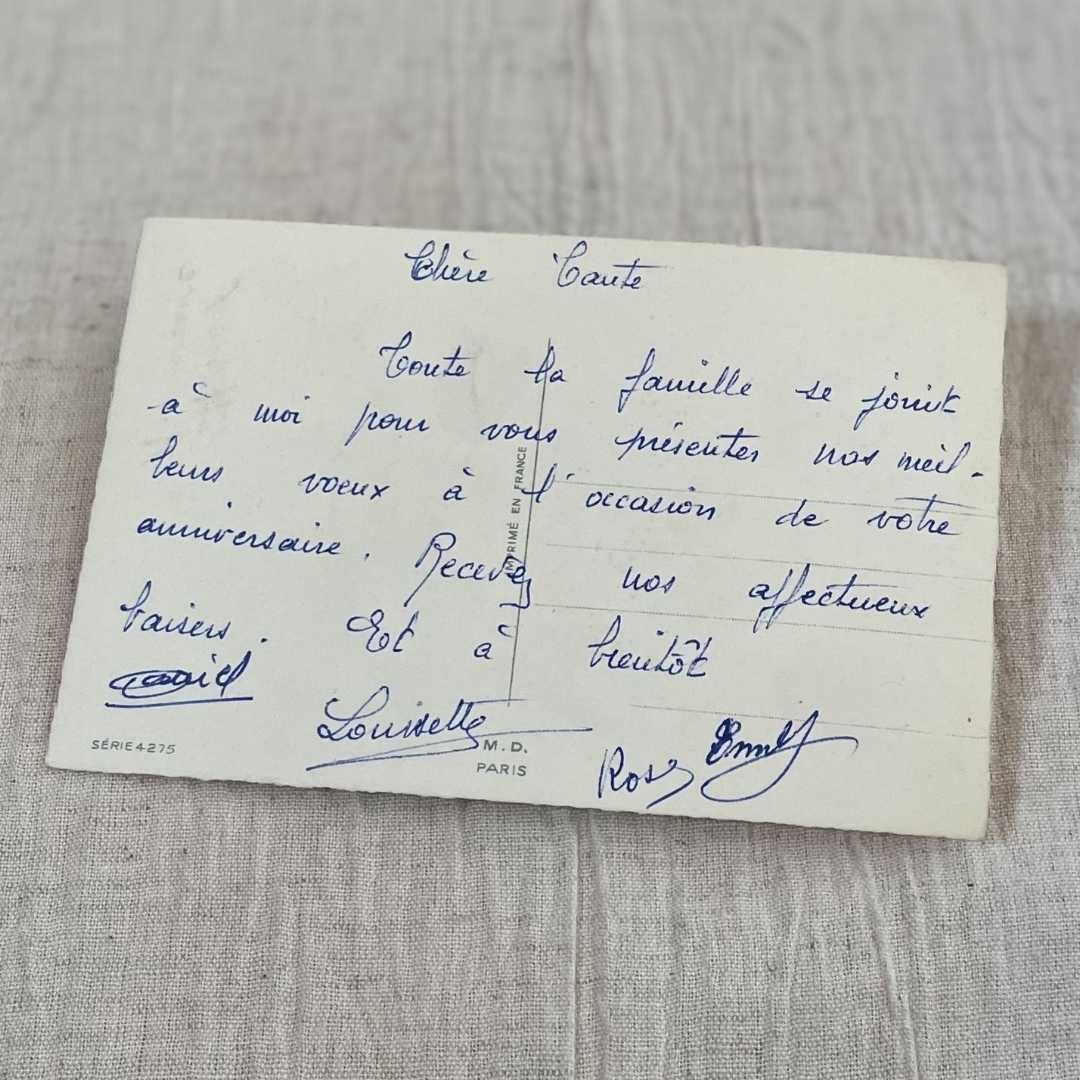 Chère Tante
Toute la famille se joint
à moi pour vous présenter nos meil-
leurs voeux à l'occasion de votre
anniversaire. Recevez nos affectueux
baisers. Et à bientôt
Louisette
Rose
IMPRIMÉ EN FRANCE
SÉRIE 4275
M. D.
PARIS